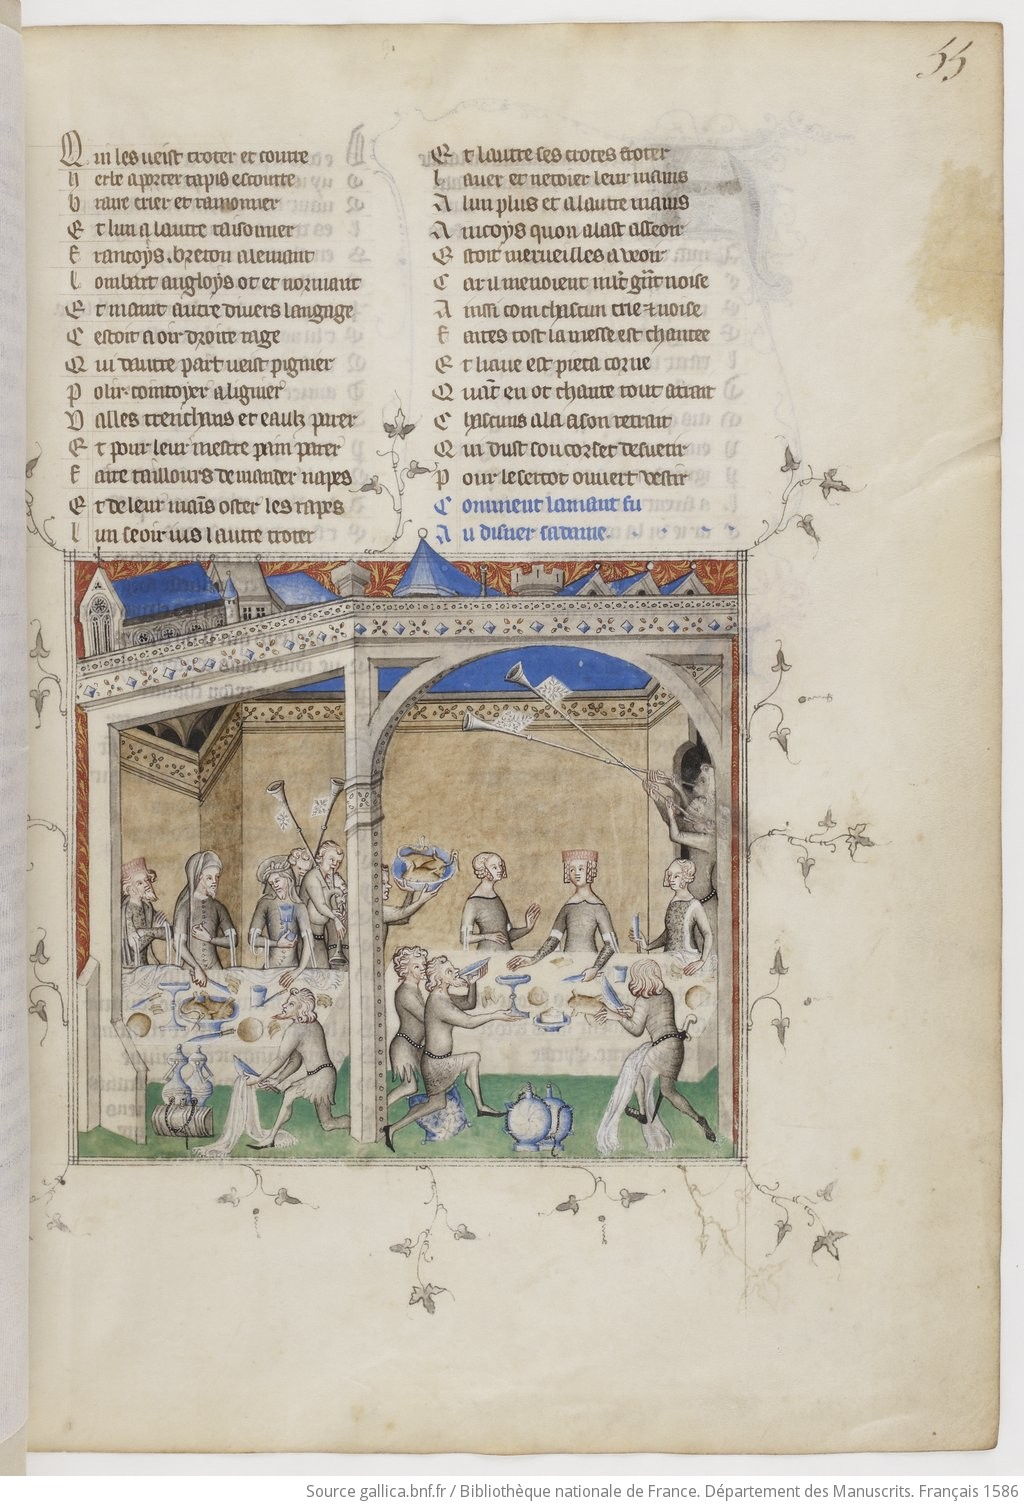 55
Qui les veist troter et courre
Herbe aporter tapis escourre
Braire crier et ramonner
Et lun a lautre raisonner
Francoys breton alemant
Lombart angloys ot et normant
Et maint autre divers langage
Cestoit a oir droite rage
Qui dautre part veist pignier
Polir cointoyer alignier
Et pour leur mestre pain parer
Faire taillours demander napes
Et de leur mains oster les rapes
Lun seoir ius lautre troter
Et lautre ses crotes froter
Laver et netoier leur mains
A lun plus et a lautre mains
Aincoys quon alast asseoir
Estoit merveilles a veoir
Car il menoient mlt grant noise
Ainsi com chascun crie et voise
Faites tost la messe est chantee
Et liaue est pieca cornee
Quant en ot chante tout a trait
Chascuns ala a son retrait
Qui dust son corset desvetir
Pour le sercot ouvert vestir
Comment lamant fu
Au disner sa dame.
Source gallica.bnf.fr / Bibliothèque nationale de France. Département des Manuscrits. Français 1586